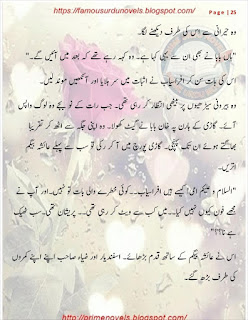 https://famousurdunovels.blogspot.com/
Page | 25
وہ حیرانی سے اس کی طرف دیکھنے لگا۔
"ہاں بابا نے بھی ان سے یہی کہا ہے۔ وہ کہہ رہے تھے کہ بعد میں آئیں گے۔"
اس کی بات سن کر افراسیاب نے اثبات میں سر ہلایا اور آنکھیں موند لیں۔
وہ بیرونی سیڑھیوں پر بیٹھی انتظار کر رہی تھی۔ جب رات کے نو بجے وہ لوگ واپس
آئے۔ گاڑی کے ہارن پہ خان بابا نے گیٹ کھولا۔ وہ اپنی جگہ سے اٹھ کر تقریبا
بھاگتے ہوئے ان تک پہنچی۔ گاڑی پورچ میں آ کر رکی تو سب سے پہلے عائشہ بیگم
اتریں۔
"السلام و علیکم امی! کیسے ہیں افراسیاب۔۔ کوئی خطرے والی بات تو نہیں۔ اور آپ نے
مجھے فون کیوں نہیں کیا۔۔ میں کب سے ویٹ کر رہی تھی۔۔ پریشان تھی۔ سب ٹھیک
ہے نا؟؟"
اس نے عائشہ بیگم کے ساتھ قدم بڑھائے۔ اسفندیار اور ضیاء صاحب اپنے اپنے کمروں
کی طرف بڑھ گئے۔
http://primenovels.blogspot.com/